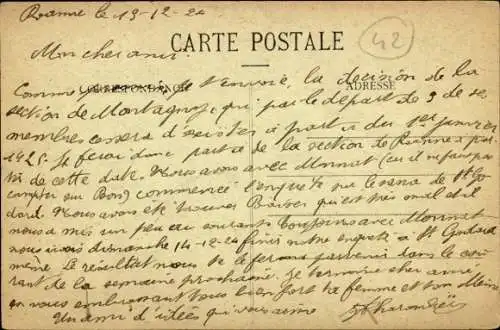 Roanne le 19-12-24
42
Mon cher ami.
CARTE POSTALE
CORRESPONDANCE
ADRESSE
Comme je t'envoie, la décision de la
section de Montagny, qui par le départ de 3 de ses
membres cessera d'exister à partir du 1er janvier
1925. Je ferai donc partie de la section de Roanne à par
tir de cette date. Nous avons avec Monnat (car il ne faut pas
compter sur Bond commencé l'enquête sur le sana de St God
dard. Nous avons été trouver qui est très mal et il
nous a mis un peu au courant. Toujours avec Monnat
nous irons dimanche 14-12-24 finir notre enquête à St Godard
même. Le résultat nous te le ferons parvenir dans le cou-
rant de la semaine prochaine. Je termine cher ami
en vous embrassant tous bien fort ta femme et ton
Un ami d'idées qui vous aime